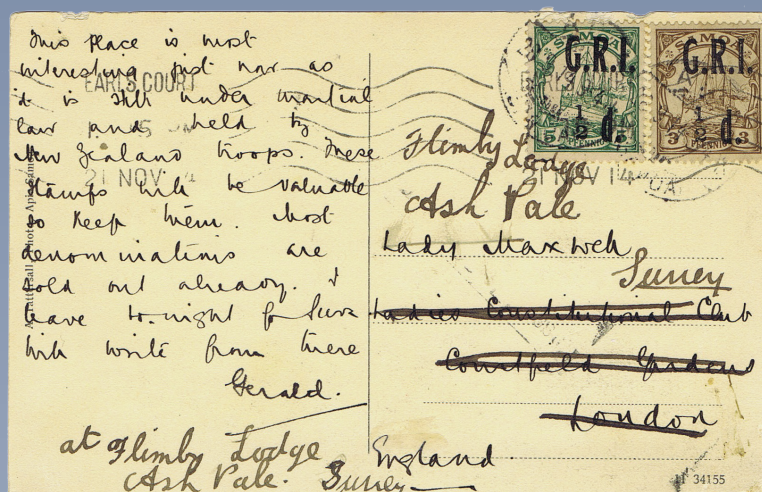 This place is most
interesting just now as
it is still under martial
law and held by
New Zealand troops. These
stamps will be valuable
so keep them. Most
denominations are
sold out already. I
leave to-night for Suva
will write from there
Gerald.
at Flimby Lodge
Ash Vale. Surrey
EARLS COURT
21 NOV 14
SAMOA
G.R.I.
1/2 d.
5 PFENNIG 5
SAMOA
G.R.I.
1/2 d.
3 PFENNIG 3
EARLS COURT
21 NOV 14
Flimby Lodge
Ash Vale
Lady Maxwell
Surrey
Ladies Constitutional Club
Courtfield Gardens
London
England
Tattersall Photo Apia Samoa
11 34155